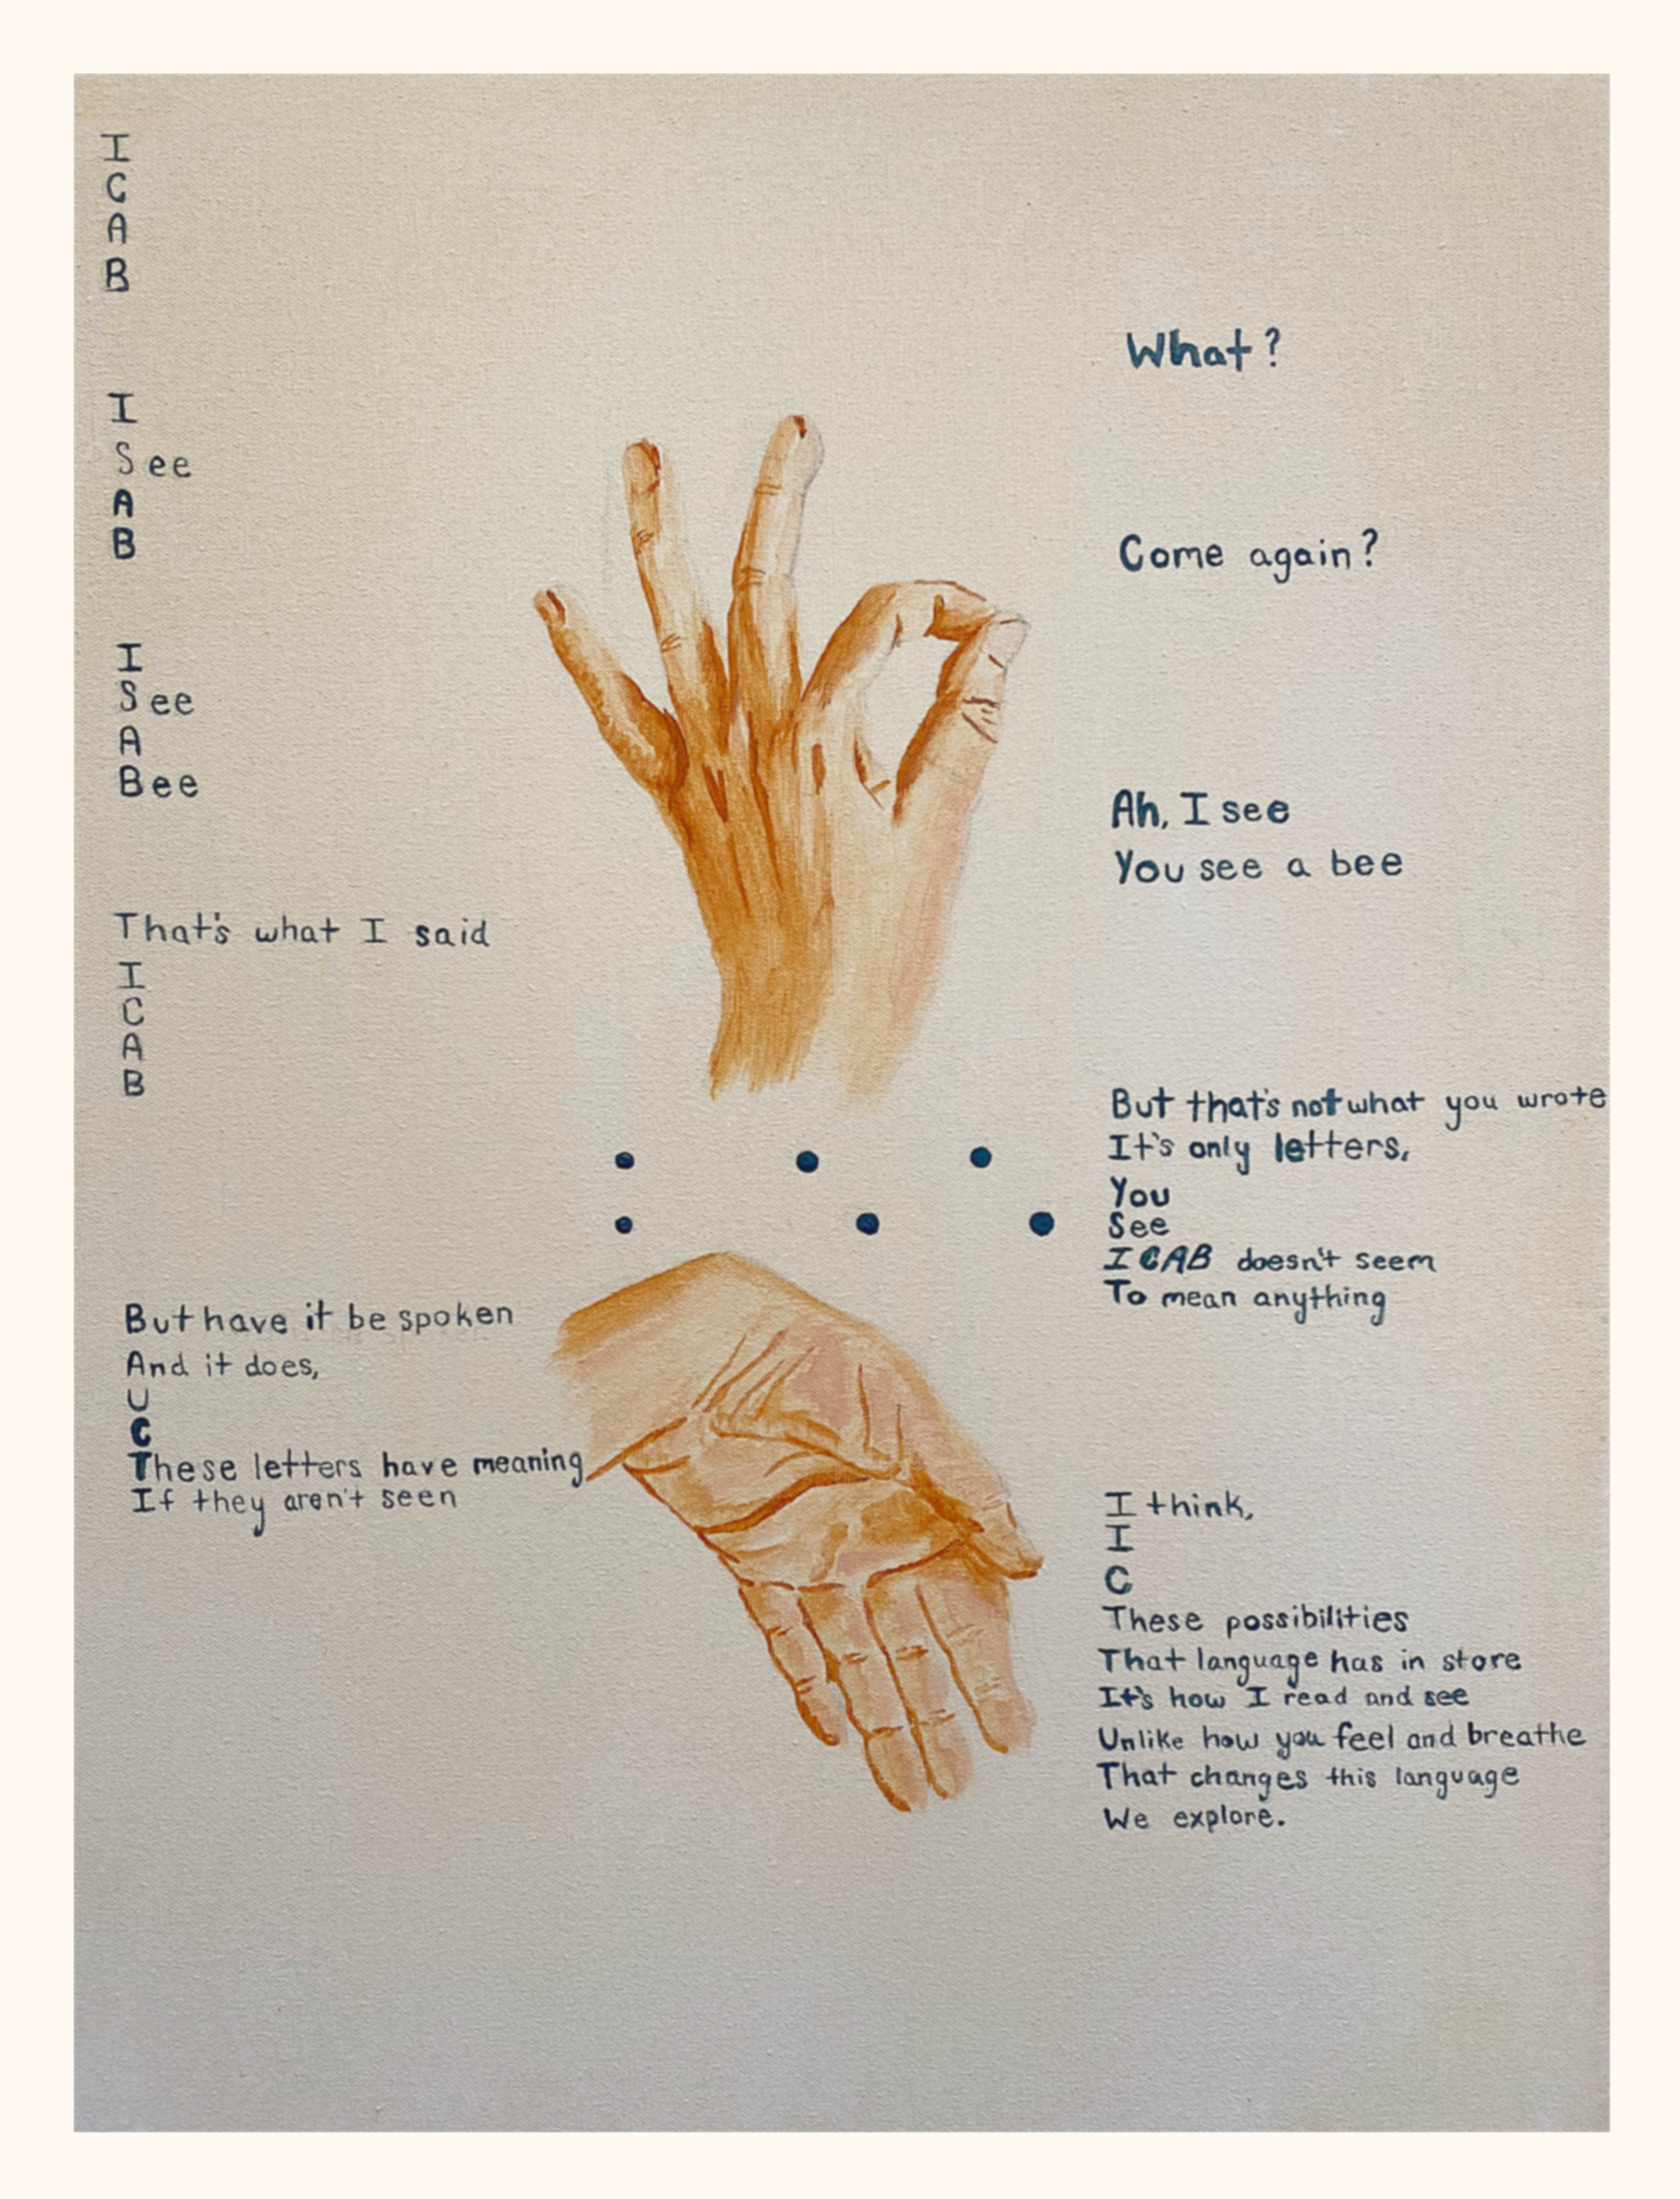 I
C
A
B
What?
I
See
A
B
Come again?
I
See
A
Bee
Ah, I see
You see a bee
That's what I said
I
C
A
B
But that's not what you wrote
It's only letters,
You
See
ICAB doesn't seem
To mean anything
But have it be spoken
And it does,
U
C
These letters have meaning
If they aren't seen
I think,
I
C
These possibilities
That language has in store
It's how I read and see
Unlike how you feel and breathe
That changes this language
We explore.